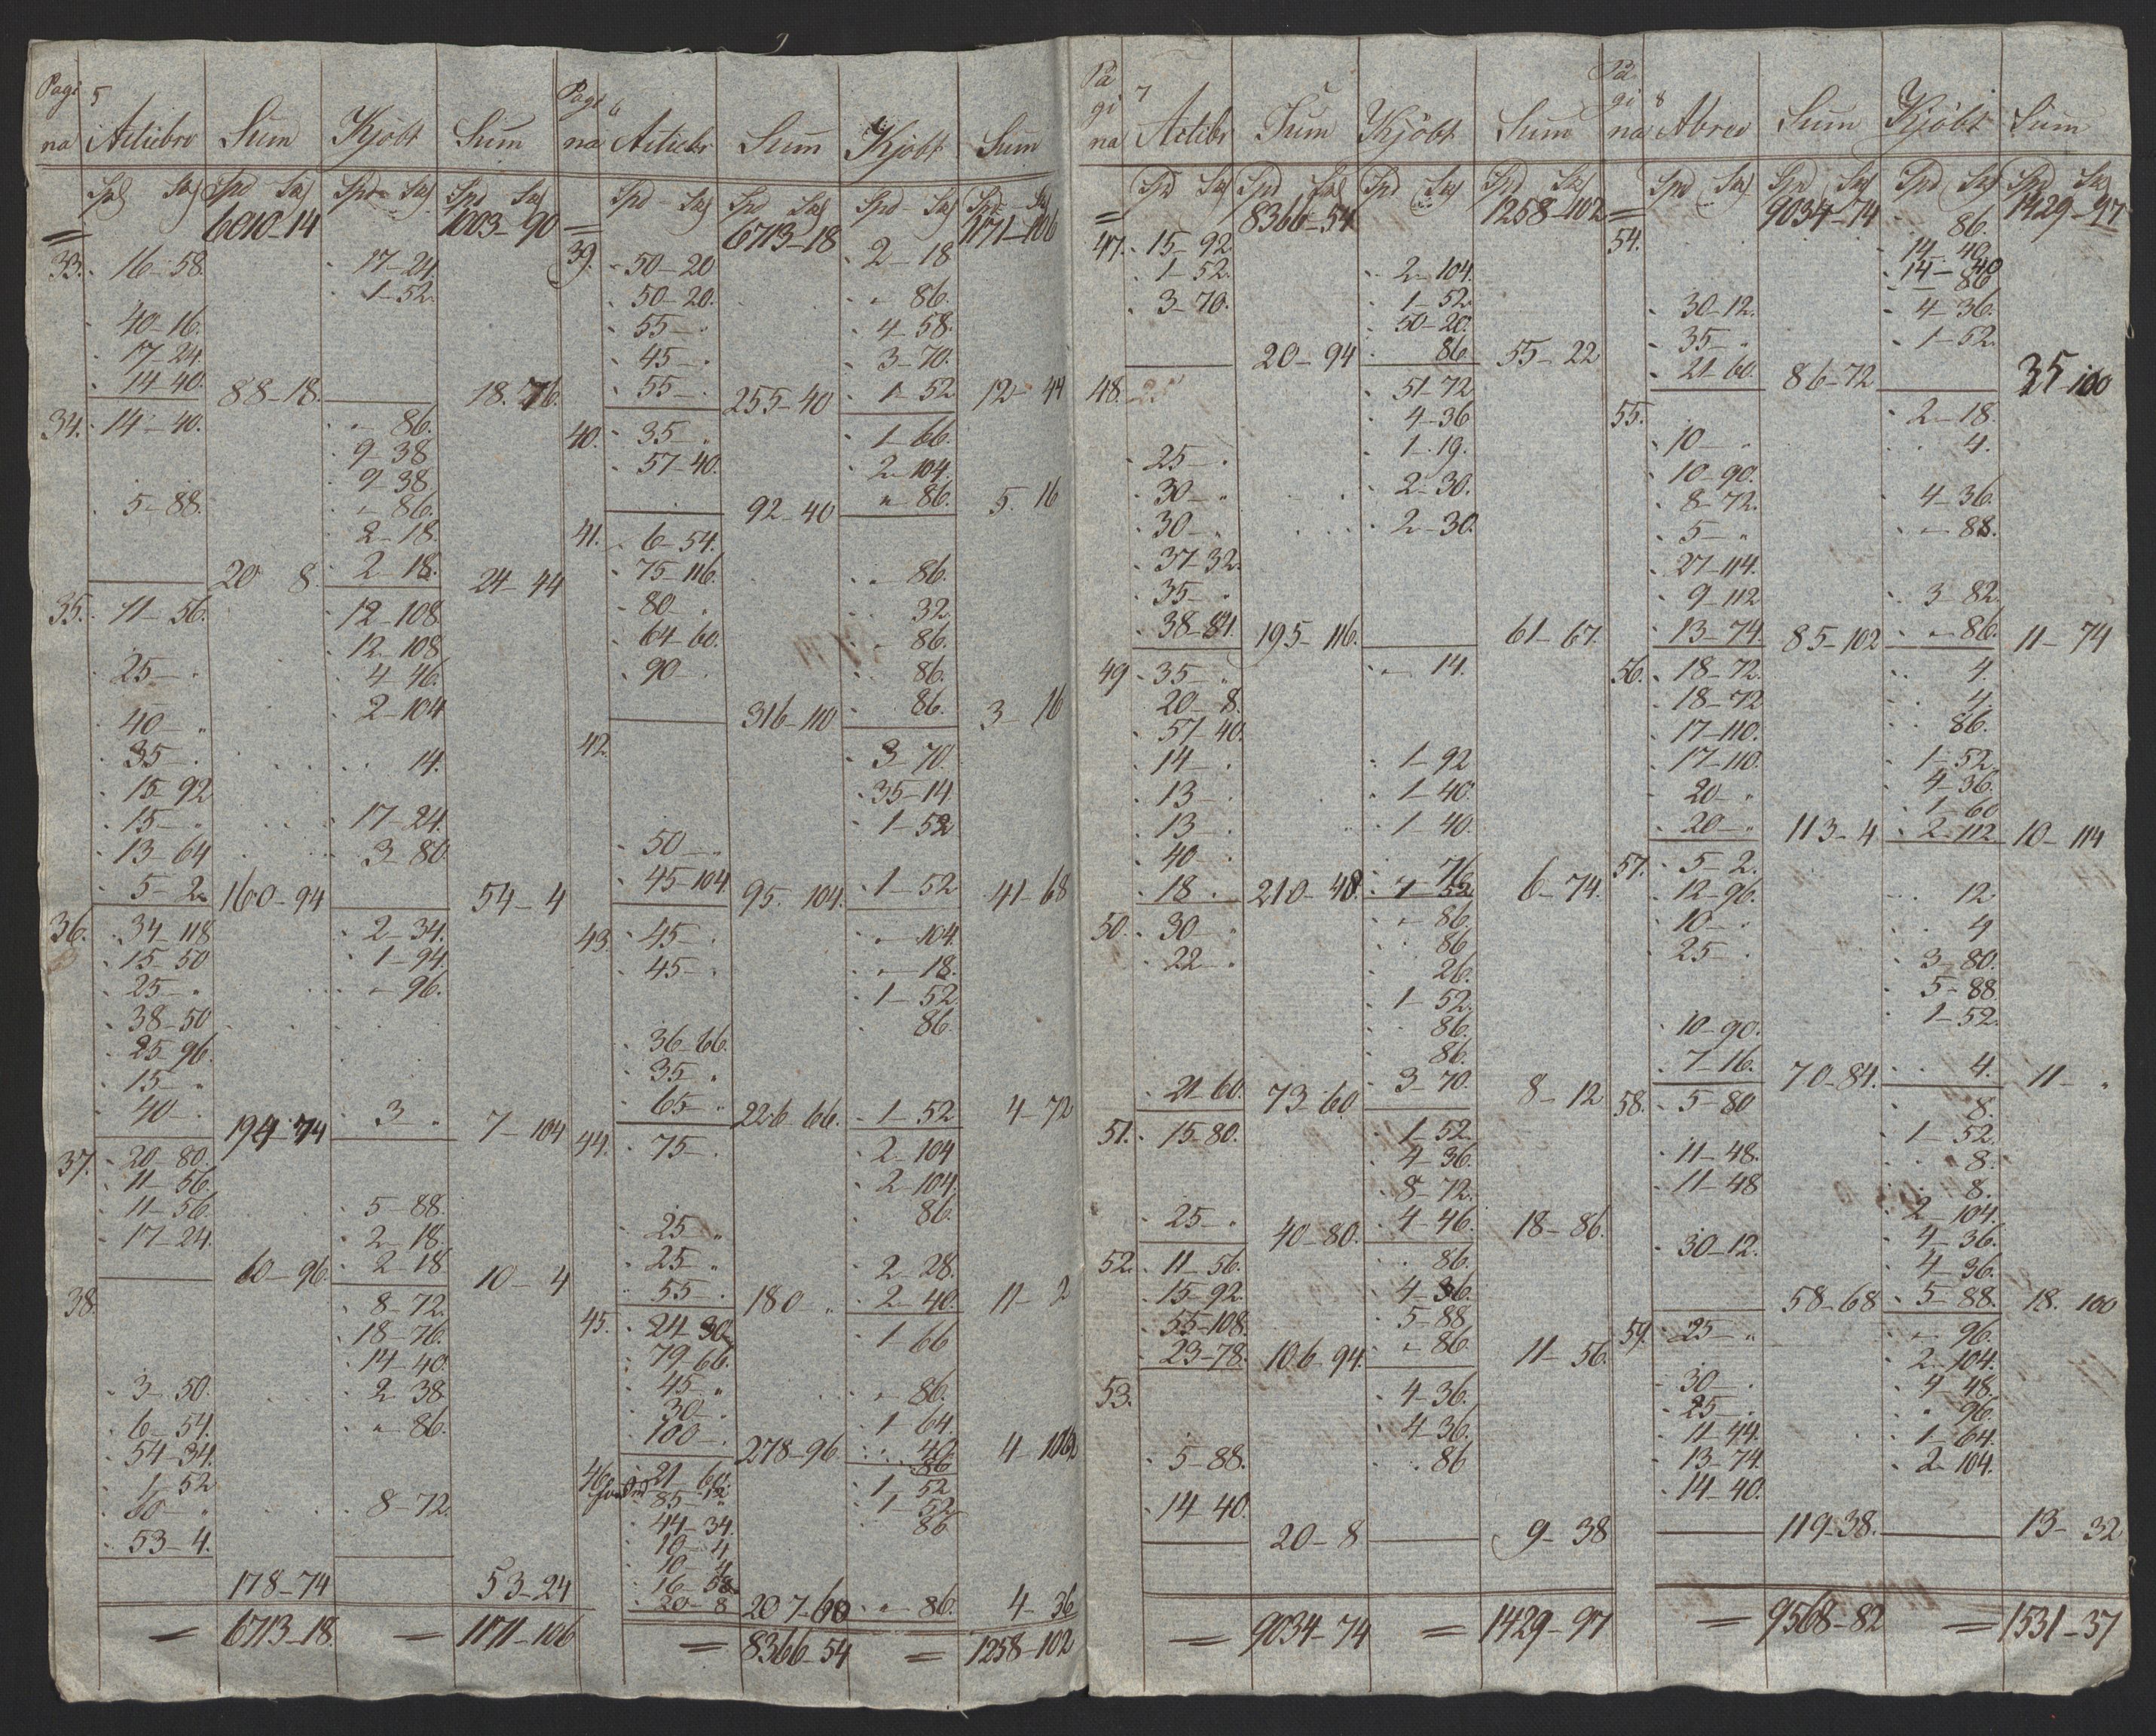 Pagi 5
na Actiebr Sum Kjöbt Sum
Spd Sk Spd Sk Spd Sk Spd Sk
6010-14 1003-90
33. 16-58. 17-24.
1-52.
40-16.
17-24.
14-40. 88-18. 18.76.
34. 14-40. " 86.
9-38
9-38
5-88. "-86.
2-18.
20 8. 2-18. 24-44
35. 11-56. 12-108
12-108
25- . 4-46.
2-104
40- "
35- . 14.
15-92
15- " 17-24.
13-64 3-80
5-2 160-94 54-4
36. 34-118 2-34.
15-50 1-94.
25- " "-96.
38-50
25-96.
15- "
40- . 194-74 3 " 7-104
37. 20-80.
11-56.
11-56. 5-88.
17-24. 2-18.
60-96 2-18 10-4
38. 8-72.
18-76.
14-40.
3-50. 2-38
6-54. " 86.
54-34.
1-52
60- " 8-72.
53-4.
178-74 53-24
= 6713-18 = 1171-106
Pagi 6
na Actiebr Sum Kjöbt Sum
Spd Sk Spd Sk Spd Sk Spd Sk
6713-18 1171-106
39. 50-20 2-18
50-20. " 86.
55- . 4-58.
45- . 3-70.
55- . 255-40 1-52 12-44
40. 35- . 1-66.
57-40. 2-104.
92-40 " 86. 5. 16
41. 6-54.
75-116. " 86.
80- . 32.
64-60. 86.
90- . 86.
316-110 86. 3-16
42. 3-70.
35-14
1-52
50- "
45-104 95. 104. 1-52 41-68
43. 45- . "-104.
45- . "-18.
1-52
86.
36-66.
35- "
65- " 226-66. 1-52 4-72
44. 75- . 2-104
2-104.
86.
25- "
25- " 2-28.
55- . 180 " 2-40. 11-2
45. 24-30 1-66
79-66.
45- " "-86.
30- . 1-64.
100- . 278-96 40 4-106
86
46 21-60. 1-52
85-12 1-52
44-34. 86
10-4
10-4
16-58
20-8 207-60 " 86. 4-36
= 8366-54 = 1258-102
Pa
gi 7
na Actiebr Sum Kjöbt Sum
Spd Sk Spd Sk Spd Sk Spd Sk
8366-54 1258-102
47. 15-92
1-52. 2-104.
3-70. 1-52.
50-20.
20-94 86 55-22
48. 51-72
4-36
25- . 1-19.
30- " 2-30.
30- . 2-30.
37-32.
35- "
38-84. 195-116. 61-67.
49 35- " "-14.
20-8.
57-40.
14- . 1-92
13- . 1-40.
13- . 1-40.
40- . 76
18- . 210-48. 1-52 6-74.
50. 30- " "-86.
22- " 86
26.
1-52.
86.
86.
21-60. 73-60 3-70. 8-12
51. 15-80. 1-52
4-36.
8-72.
25- " 40-80. 4-46. 18-86.
52. 11-56. 86.
15-92. 4-36.
55-108. 5-88
23-78. 106-94. "-86 11-56.
53. 4-36.
4-36.
5-88. 86
14-40.
20-8 9-38
= 9034-74 = 1429-97
Pa
gi 8
na Abrev Sum Kjöbt Sum
Spd Sk Spd Sk Spd Sk Spd Sk
9034-74 1429-97
54. 86.
14-40
14-40
86
30-12. 4-36.
35- " 1-52.
21-60. 86-72 35-100
55. 2-18.
10- " 4.
10-90.
8-72. 4-36.
5- " "-88.
27-114.
9-112 3-82.
13-74. 85-102 "-86. 11-74
56. 18-72. 4.
18-72 4.
17-110. 86.
17-110. 1-52.
20- " 4-36.
1-60
20- " 113-4 2-112. 10-114
57. 5-2.
12-96. 12
10- . 4
25- . 3-80.
5-88
10-90. 1-52.
7-16. 70-84. 4. 11- "
58. 5-80 8.
1-52.
11-48. 8.
11-48 8.
2-104.
30-12. 4-36.
4-36.
58-68 5-88. 18. 100
59. 25- " "-96.
2-104.
30- . 4-48.
25- . " 96
11-44. 1-64.
13-74. 2-104.
14-40.
119-38. 13-32
= 9568-82 = 1531-37